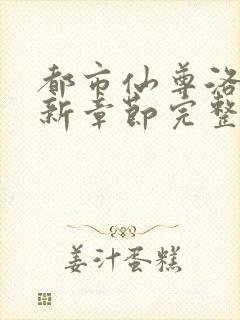 都市仙尊洛
新章节完整
姜汁蛋糕